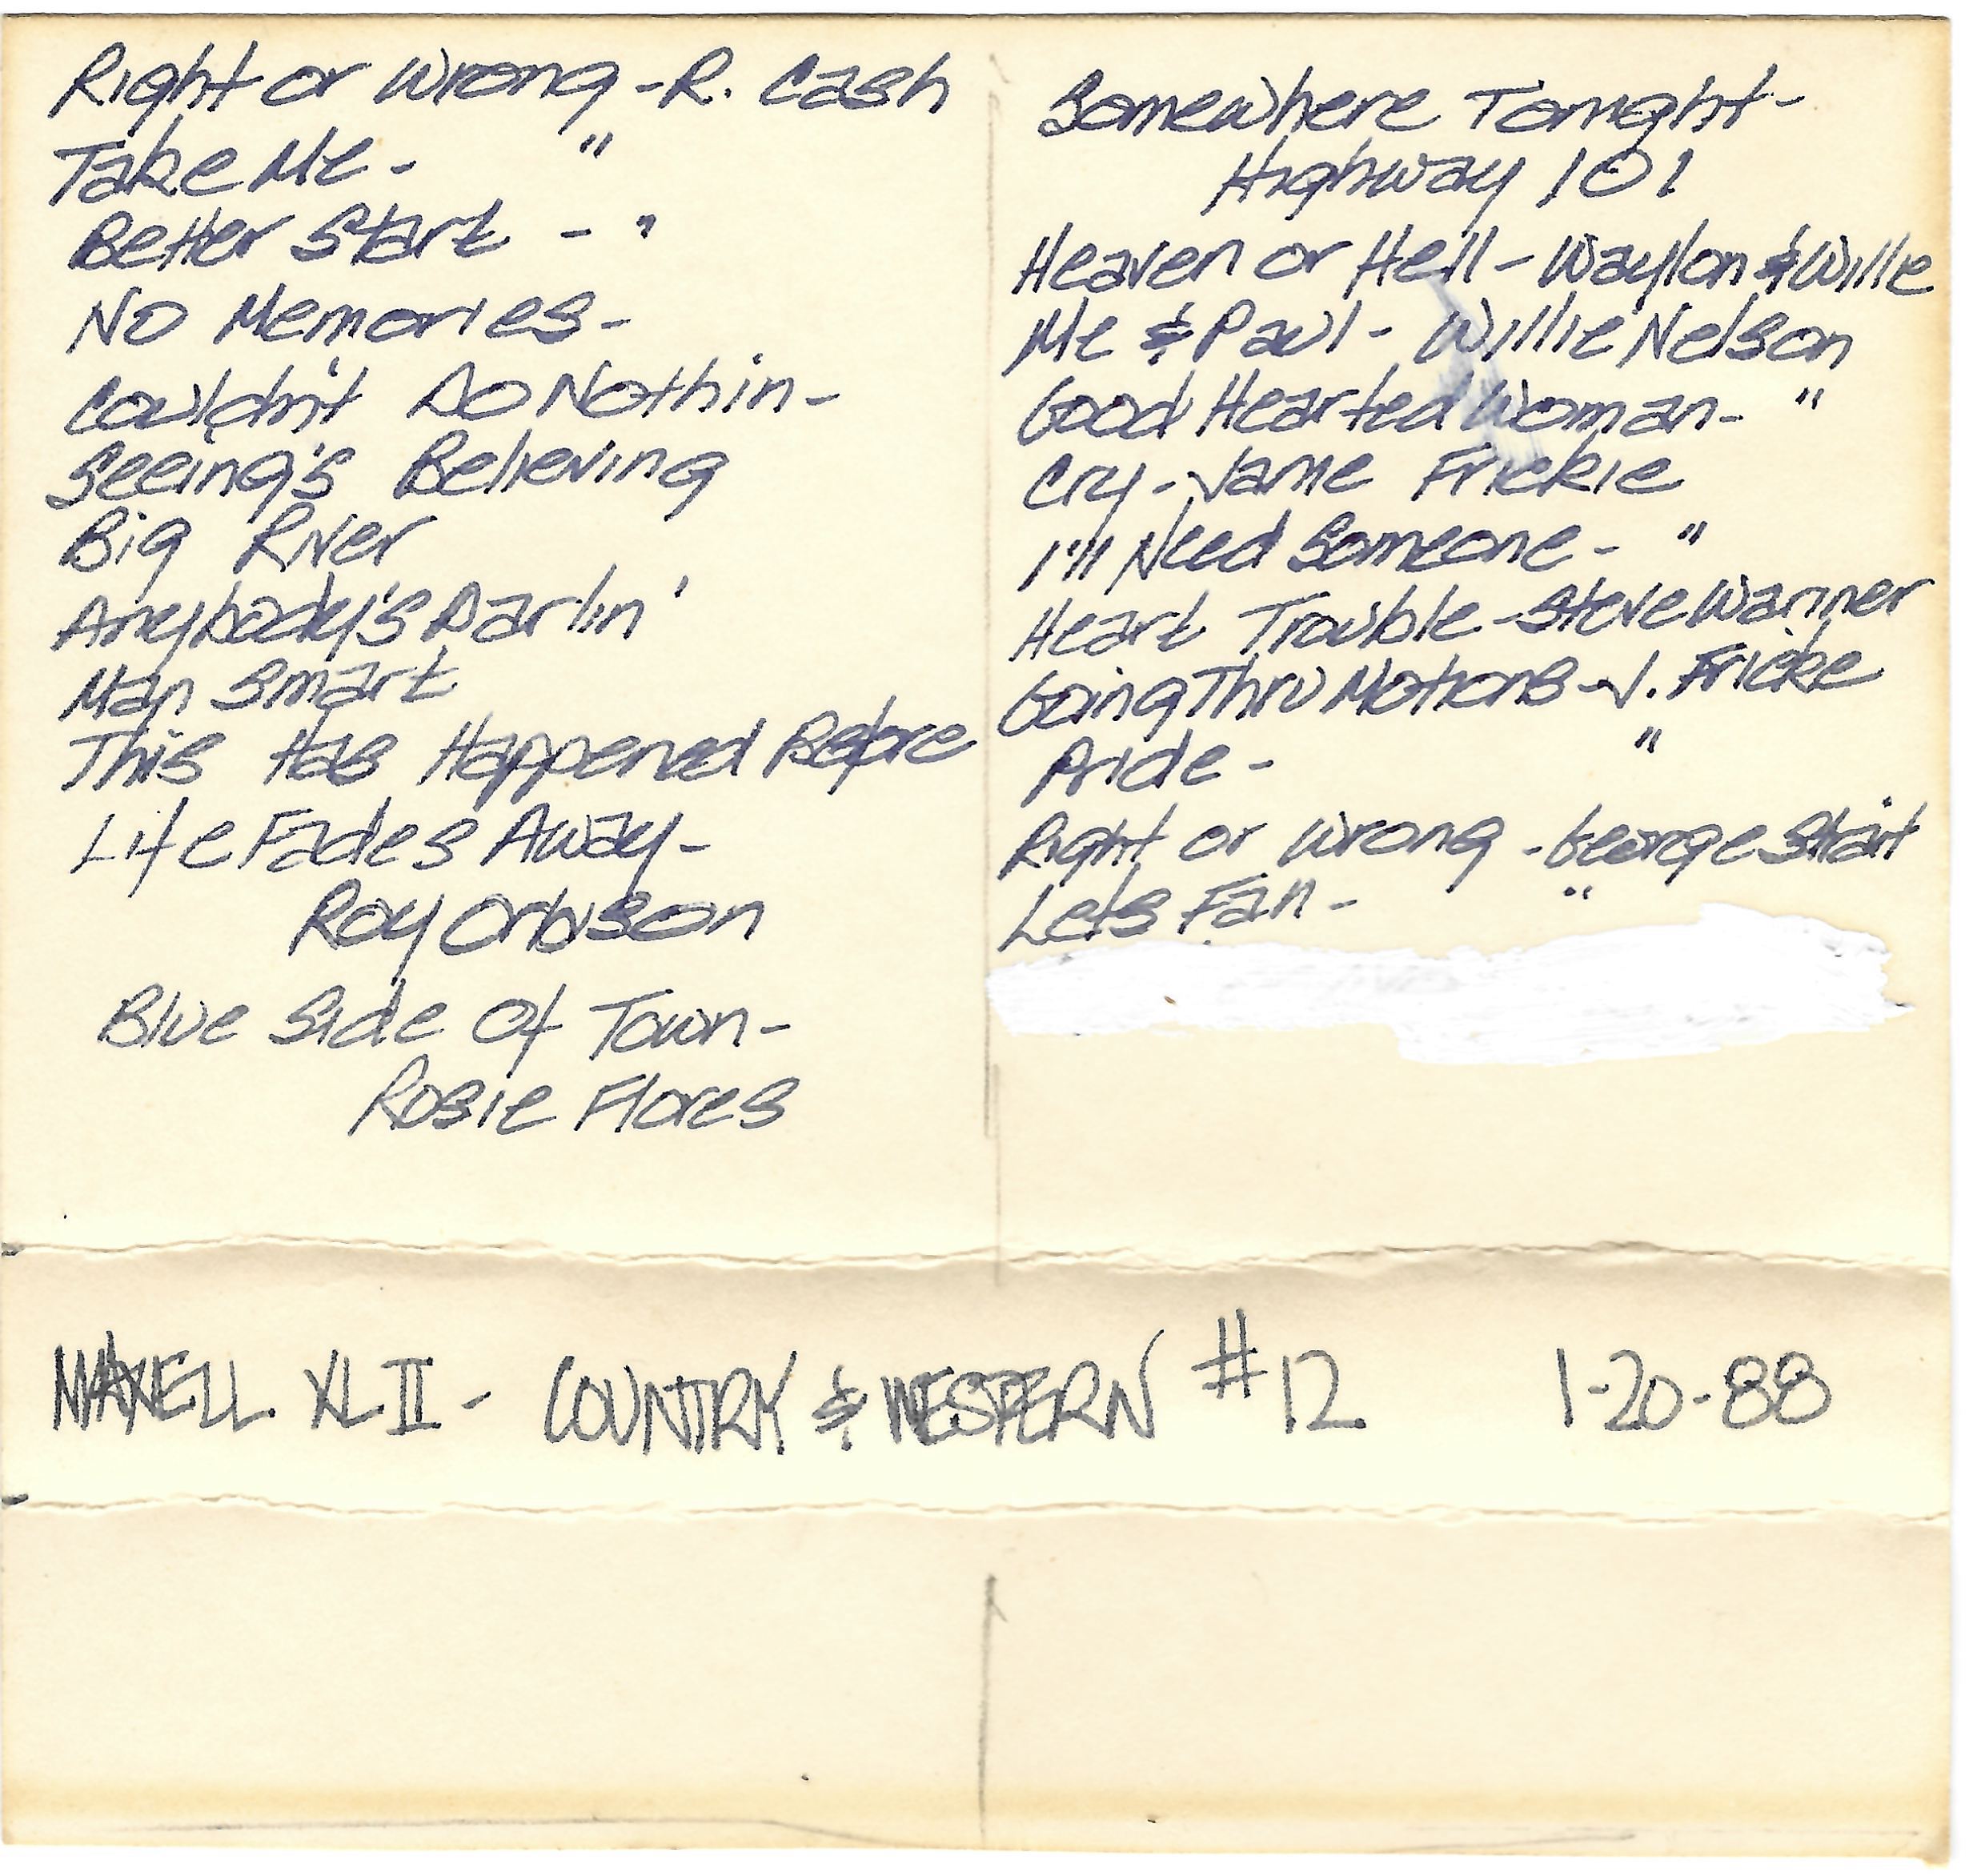 Right or Wrong - R. Cash
Take Me - "
Better Start - "
No Memories -
Couldn't Do Nothin -
Seeing's Believing
Big River
Anybody's Darlin'
Man Smart
This Has Happened Before
Life Fades Away -
Roy Orbison
Blue Side Of Town -
Rosie Flores
Somewhere Tonight -
Highway 101
Heaven or Hell - Waylon & Willie
Me & Paul - Willie Nelson
Good Hearted Woman - "
Cry - Janie Frickie
I'll Need Someone - "
Heart Trouble - Steve Wariner
Going Thru Motions - J. Fricke
Pride - "
Right or Wrong - George Strait
Lets Fall - "
MAXELL XL II - COUNTRY & WESTERN #12 1-20-88